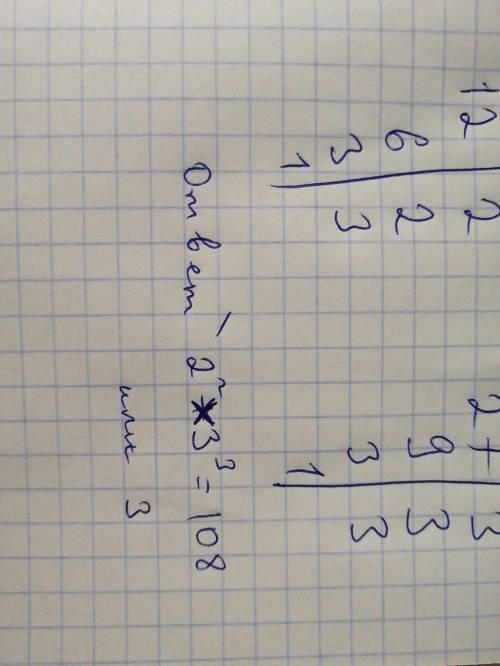 12 | 2 27 | 3
6 | 2 9 | 3
3 | 3 3 | 3
1 | 1 |
Ответ 2² * 3³ = 108
или 3